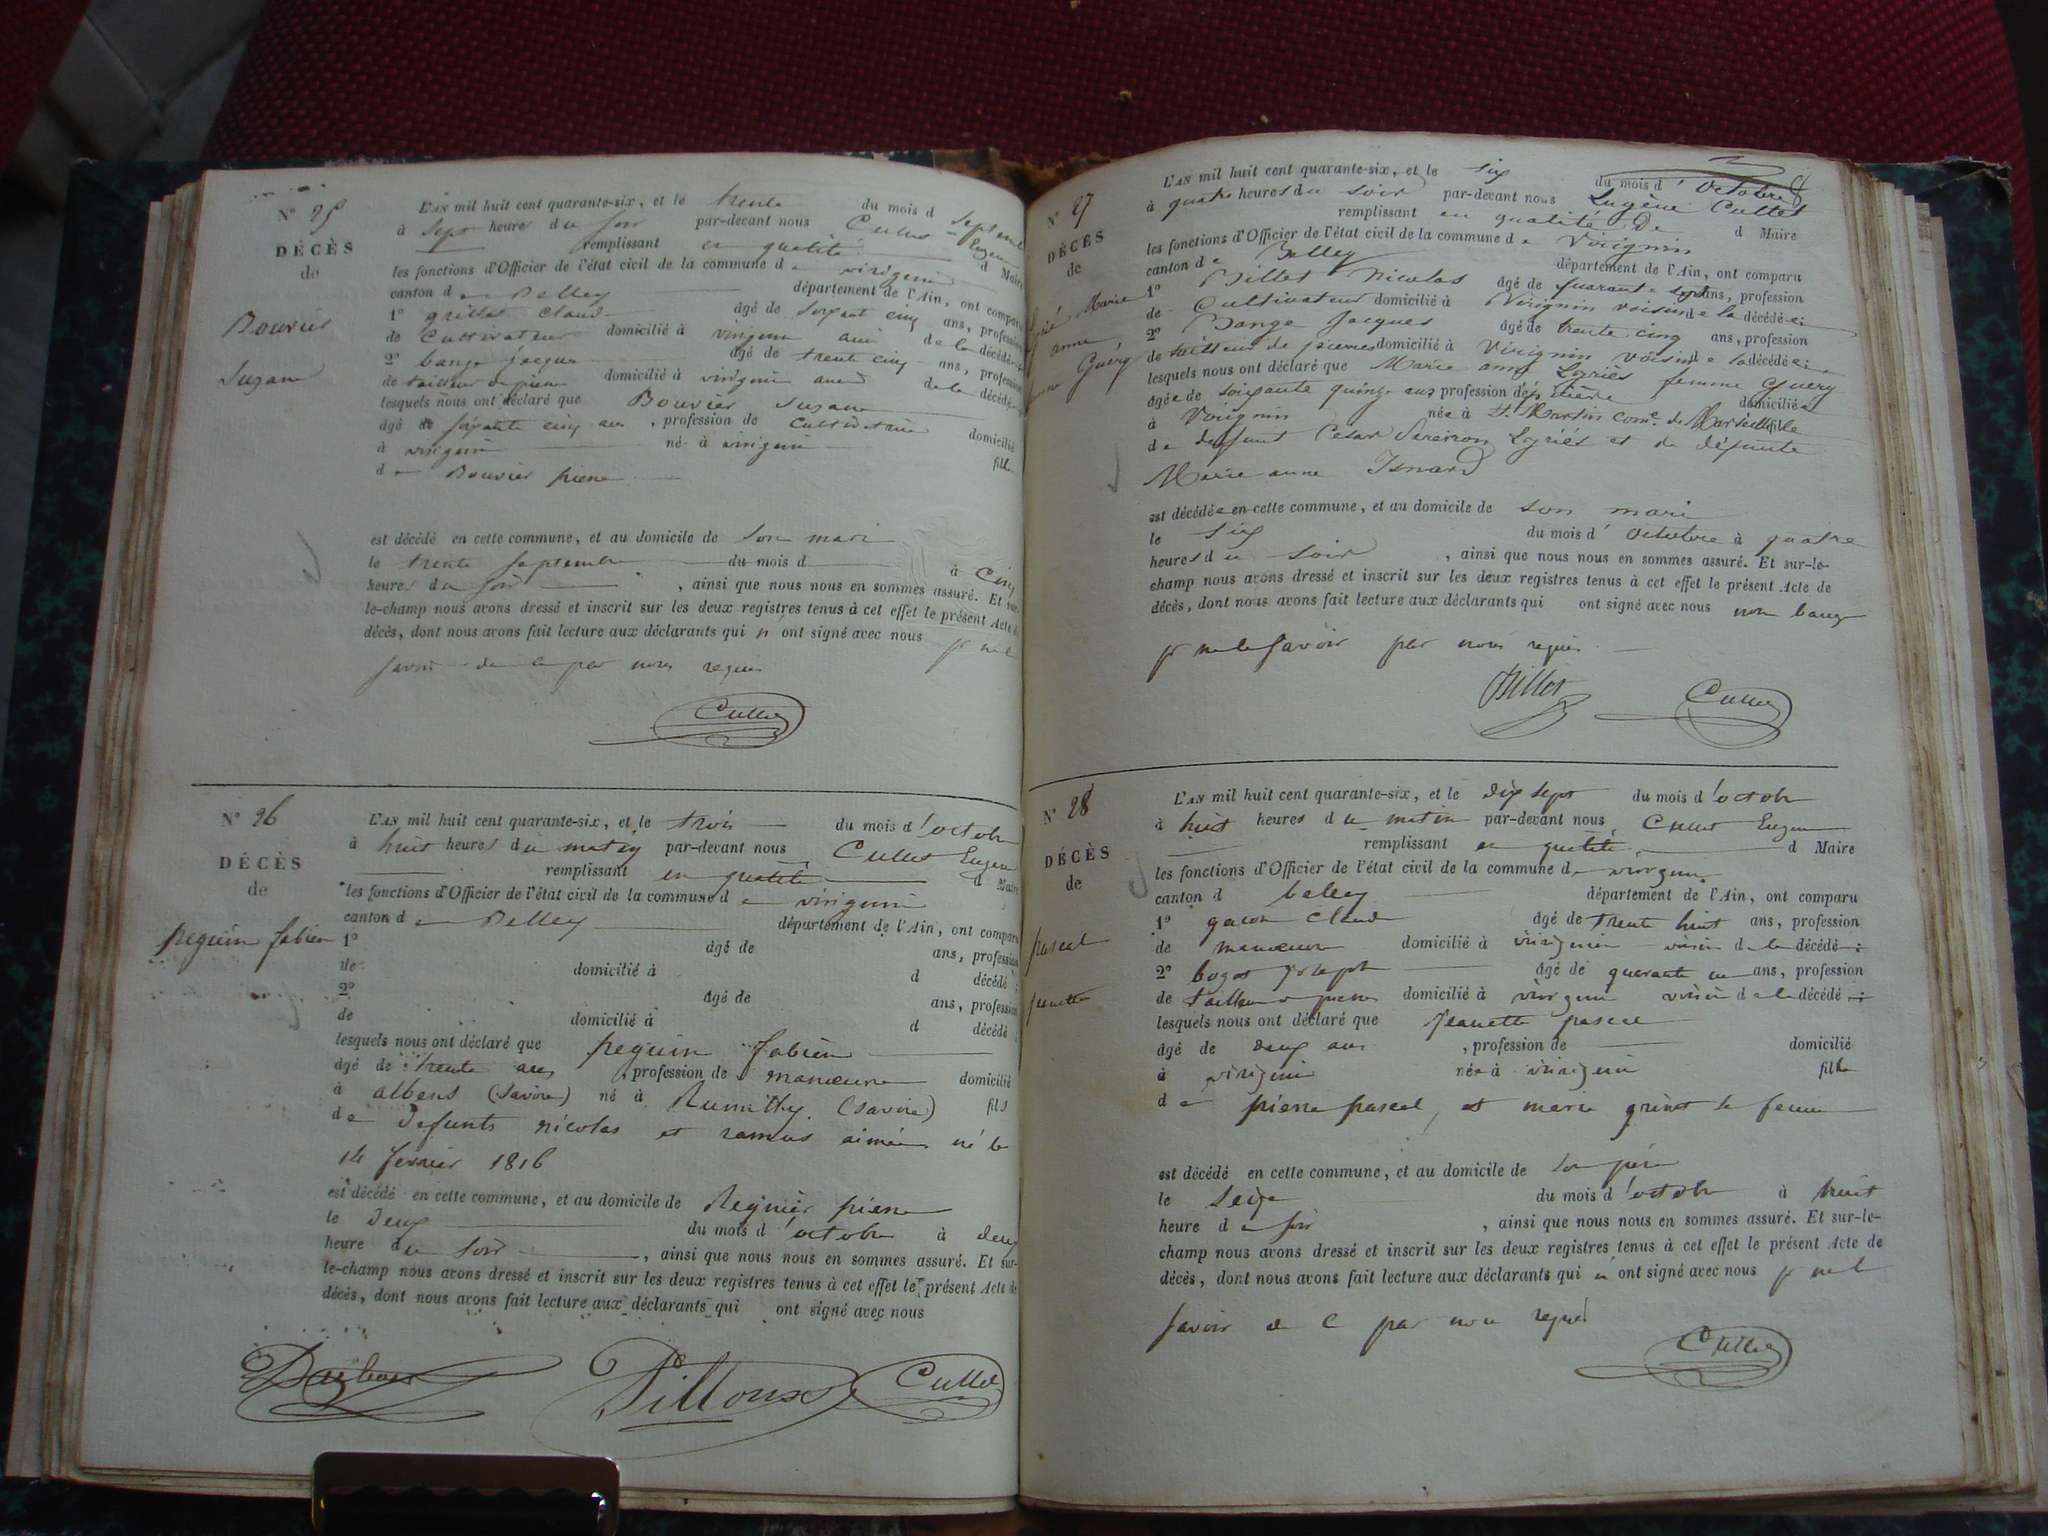 N° 25
DÉCÈS
de
Bouvier
Suzane
L'AN mil huit cent quarante-six, et le trente du mois d septembre
à sept heures du soir par-devant nous Cullet Eugene
remplissant en qualité d Maire
les fonctions d'Officier de l'état civil de la commune de virignin
canton de Belley département de l'Ain, ont comparu
1° grillot claude âgé de soixante cinq ans, profession
de Cultivateur domicilié à virignin ami de la décédée
2° bange jacques âgé de trente cinq ans, profession
de tailleur de pierre domicilié à virignin ami de la décédée
lesquels nous ont déclaré que Bouvier Suzane
âgé de soixante cinq ans, profession de Cultivatrice domicilié
à virignin né à virignin fille
de Bouvier pierre
est décédé en cette commune, et au domicile de son mari
le trente septembre du mois d à cinq
heures du soir, ainsi que nous nous en sommes assuré. Et sur-
le-champ nous avons dressé et inscrit sur les deux registres tenus à cet effet le présent Acte de
décès, dont nous avons fait lecture aux déclarants qui n ont signé avec nous pr ne le
savoir de ce par nous requis
Cullet
N° 26
DÉCÈS
de
peguin fabien
L'AN mil huit cent quarante-six, et le trois du mois d'octobre
à huit heures du matin par-devant nous Cullet Eugene
remplissant en qualité d Maire
les fonctions d'Officier de l'état civil de la commune de virignin
canton de Belley département de l'Ain, ont comparu
1° âgé de ans, profession
de domicilié à d décédé ;
2° âgé de ans, profession
de domicilié à d décédé ;
lesquels nous ont déclaré que peguin fabien
âgé de trente ans, profession de manoeuvre domicilié
à albens (Savoie) né à Rumilly (Savoie) fils
de defunts nicolas et ramus aimée né le
14 fevrier 1816
est décédé en cette commune, et au domicile de Reynier pierre
le deux du mois d'octobre à deux
heure du soir, ainsi que nous nous en sommes assuré. Et sur-
le-champ nous avons dressé et inscrit sur les deux registres tenus à cet effet le présent Acte de
décès, dont nous avons fait lecture aux déclarants qui ont signé avec nous
Pilloux Cullet
N° 27
DÉCÈS
de
Marie
anne
Guéry
L'AN mil huit cent quarante-six, et le six du mois d'Octobre
à quatre heures du soir par-devant nous Eugène Cullet
remplissant en qualité de d Maire
les fonctions d'Officier de l'état civil de la commune de Virignin
canton de Belley département de l'Ain, ont comparu
1° Billet Nicolas âgé de quarante sept ans, profession
de Cultivateur domicilié à Virignin voisin de la décédée;
2° Bange Jacques âgé de trente cinq ans, profession
de tailleur de pierres domicilié à Virignin voisin de la décédée;
lesquels nous ont déclaré que Marie anne Lyriès femme Guéry
âgée de soixante quinze ans profession de domiciliée
à Virignin née à St. Martin come. de Marseille fille
de deffunt César Lyriés et de défunte
Marie anne Isnard
est décédée en cette commune, et au domicile de son mari
le six du mois d'octobre à quatre
heures du soir, ainsi que nous nous en sommes assuré. Et sur-le-
champ nous avons dressé et inscrit sur les deux registres tenus à cet effet le présent Acte de
décès, dont nous avons fait lecture aux déclarants qui ont signé avec nous non bange
pr ne le savoir par nous requis
Billet Cullet
N° 28
DÉCÈS
de
pascal
janette
L'AN mil huit cent quarante-six, et le dix sept du mois d'octobre
à huit heures du matin par-devant nous Cullet Eugene
remplissant en qualité d Maire
les fonctions d'Officier de l'état civil de la commune de virignin
canton d belley département de l'Ain, ont comparu
1° gacon claude âgé de trente huit ans, profession
de manoeuvre domicilié à virignin voisin de la décédé ;
2° bogos joseph âgé de quarante un ans, profession
de tailleur de pierres domicilié à virignin voisin de la décédé ;
lesquels nous ont déclaré que Jeanette pascal
âgé de deux ans, profession de domicilié
à virignin née à virignin fille
de pierre pascal, et marie grinet sa femme
est décédé en cette commune, et au domicile de son père
le seize du mois d'octobre à huit
heure de soir, ainsi que nous nous en sommes assuré. Et sur-le-
champ nous avons dressé et inscrit sur les deux registres tenus à cet effet le présent Acte de
décès, dont nous avons fait lecture aux déclarants qui n ont signé avec nous pr ne le
savoir de ce par nous requis
Cullet